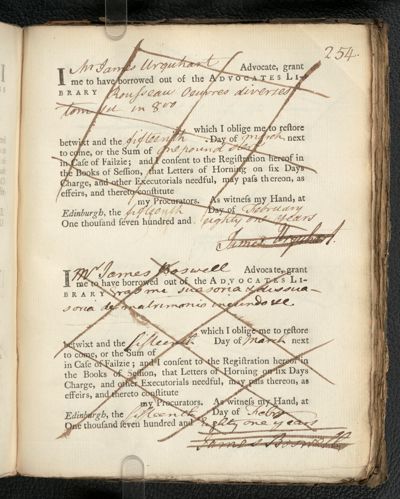 254.
I Mr James Urquhart Advocate, grant
me to have borrowed out of the ADVOCATES LI-
BRARY Rousseau Oeuvres diverses
tom 1st in 8vo
which I oblige me to reſtore
betwixt and the fifteenth Day of March next
to come, or the Sum of one pound
in Caſe of Failzie; and I conſent to the Regiſtration hereof in
the Books of Seſſion, that Letters of Horning on ſix Days
Charge, and other Executorials needful, may paſs thereon, as
effeirs, and thereto conſtitute
my Procurators. As witneſs my Hand, at
Edinburgh, the fifteenth Day of February
One thouſand ſeven hundred and eighty one years
James Urquhart.
I Mr James Boswell Advocate, grant
me to have borrowed out of the ADVOCATES LI-
BRARY suasoria
de matrimonio
which I oblige me to reſtore
betwixt and the fifteenth Day of March next
to come, or the Sum of
in Caſe of Failzie; and I conſent to the Regiſtration hereof in
the Books of Seſſion, that Letters of Horning on ſix Days
Charge, and other Executorials needful, may paſs thereon, as
effeirs, and thereto conſtitute
my Procurators. As witneſs my Hand, at
Edinburgh, the fifteenth Day of Febry
One thouſand ſeven hundred and Eighty one years
James Boswell